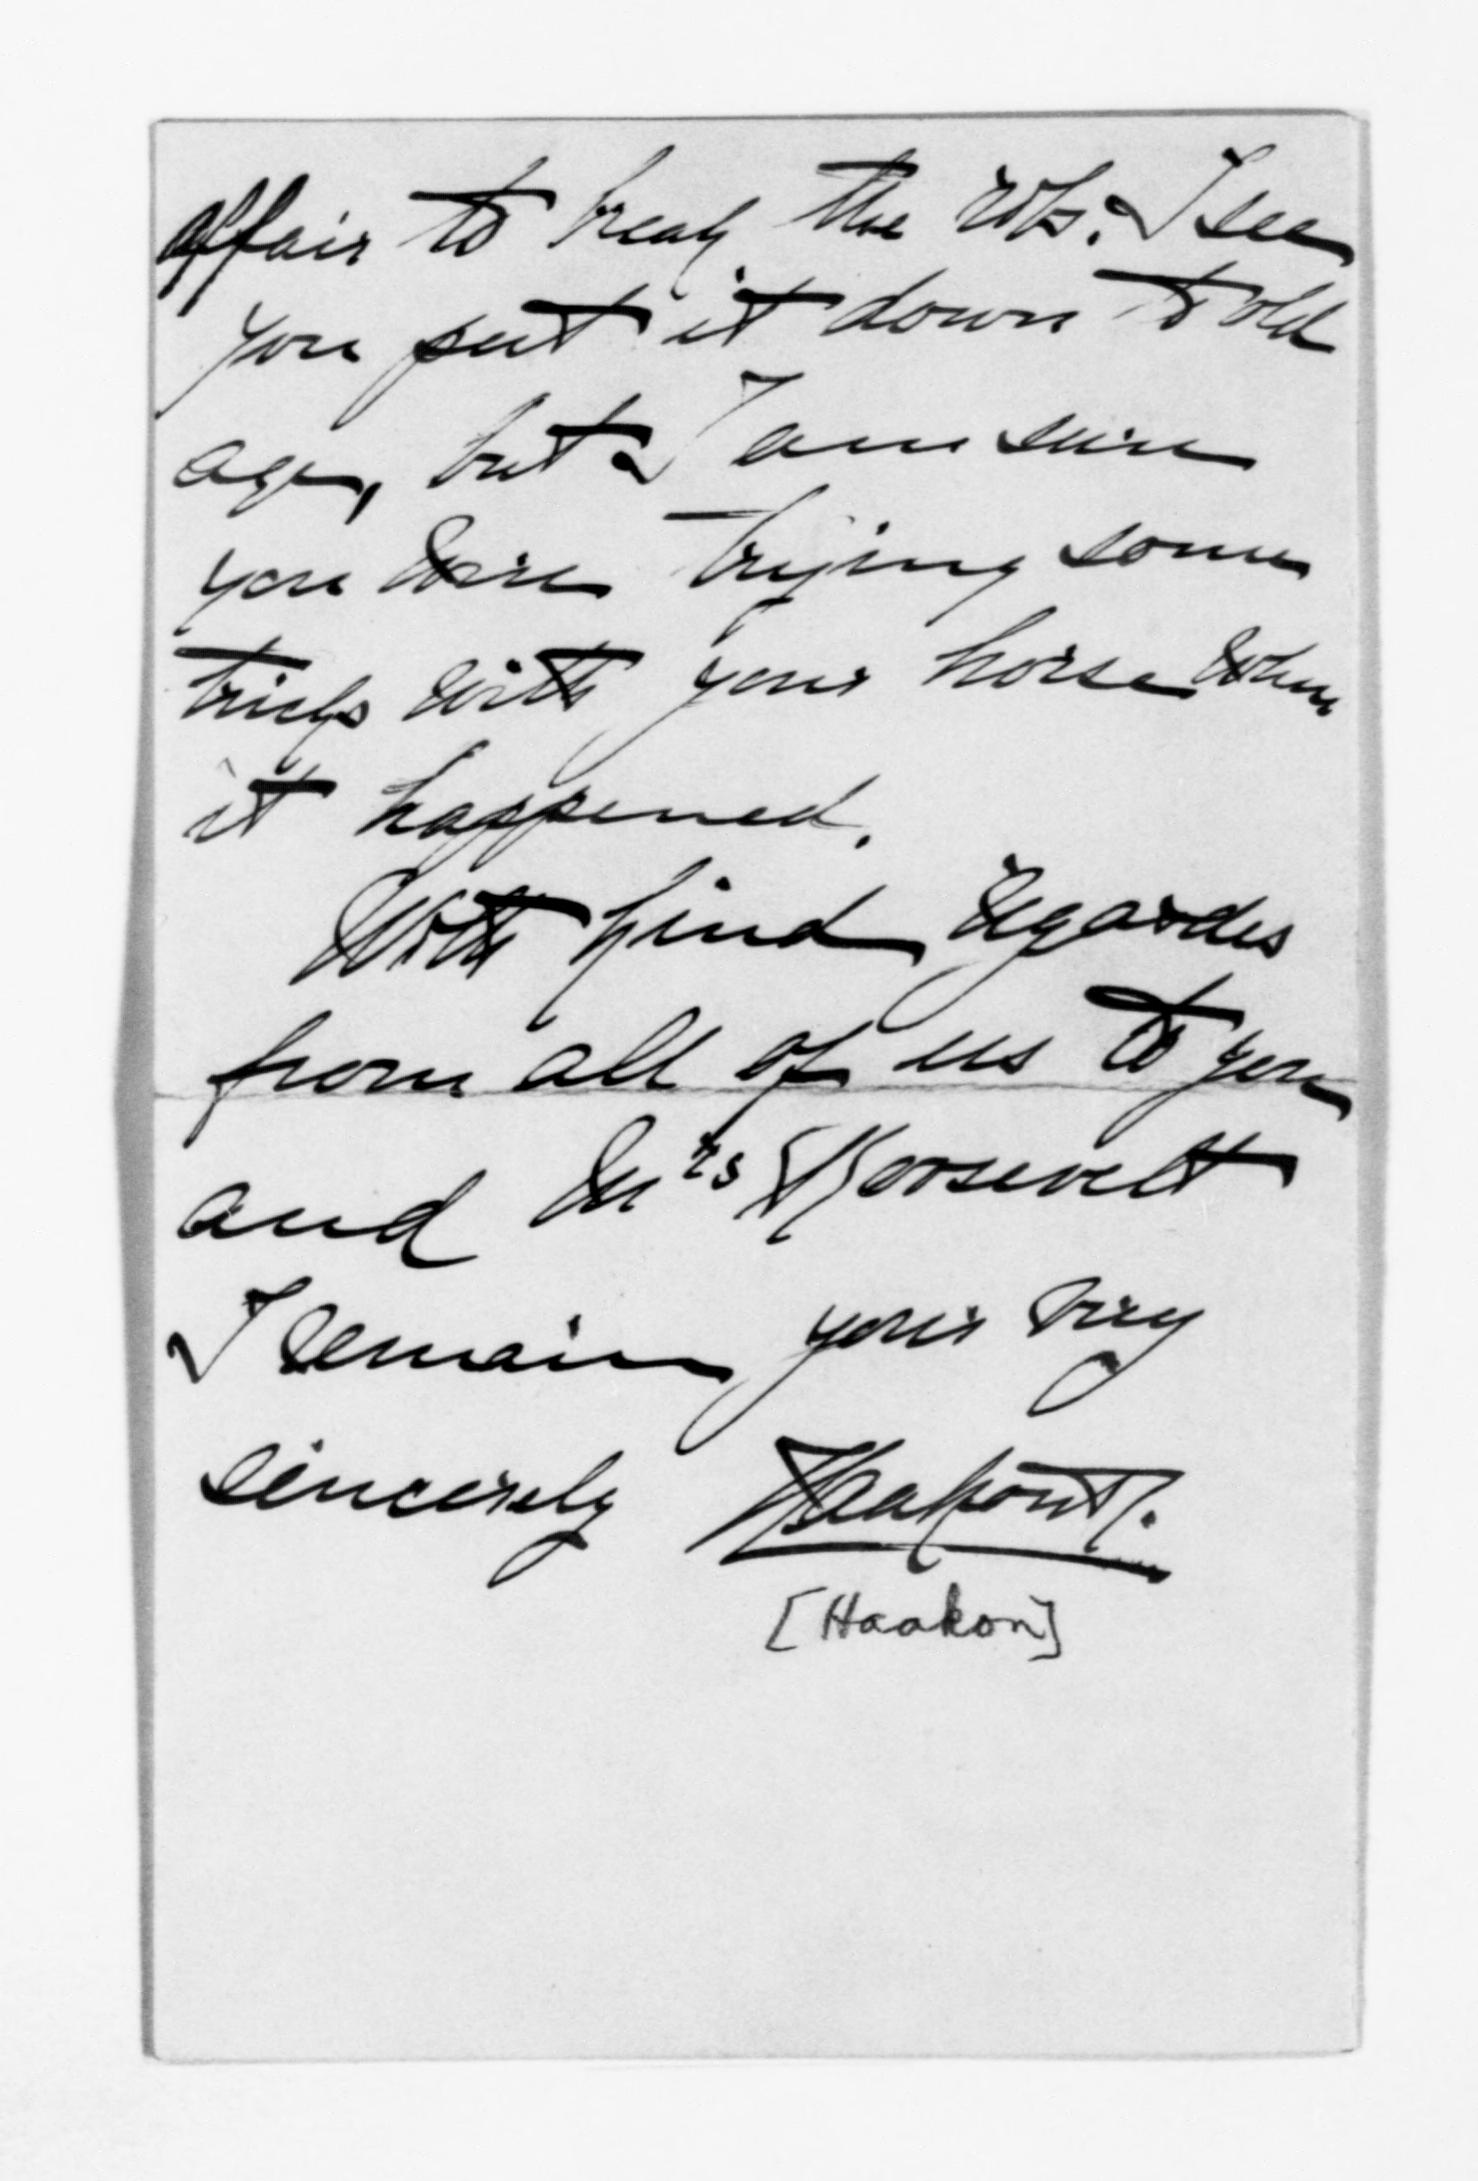 affair to break the ribs. I see
you put it down to old
age, but I am sure
you were trying some
tricks with your horse when
it happened.
With kind regardes
from all of us to you
and Mrs Roosevelt
I remain your very
sincerely Haakon R.
[Haakon]